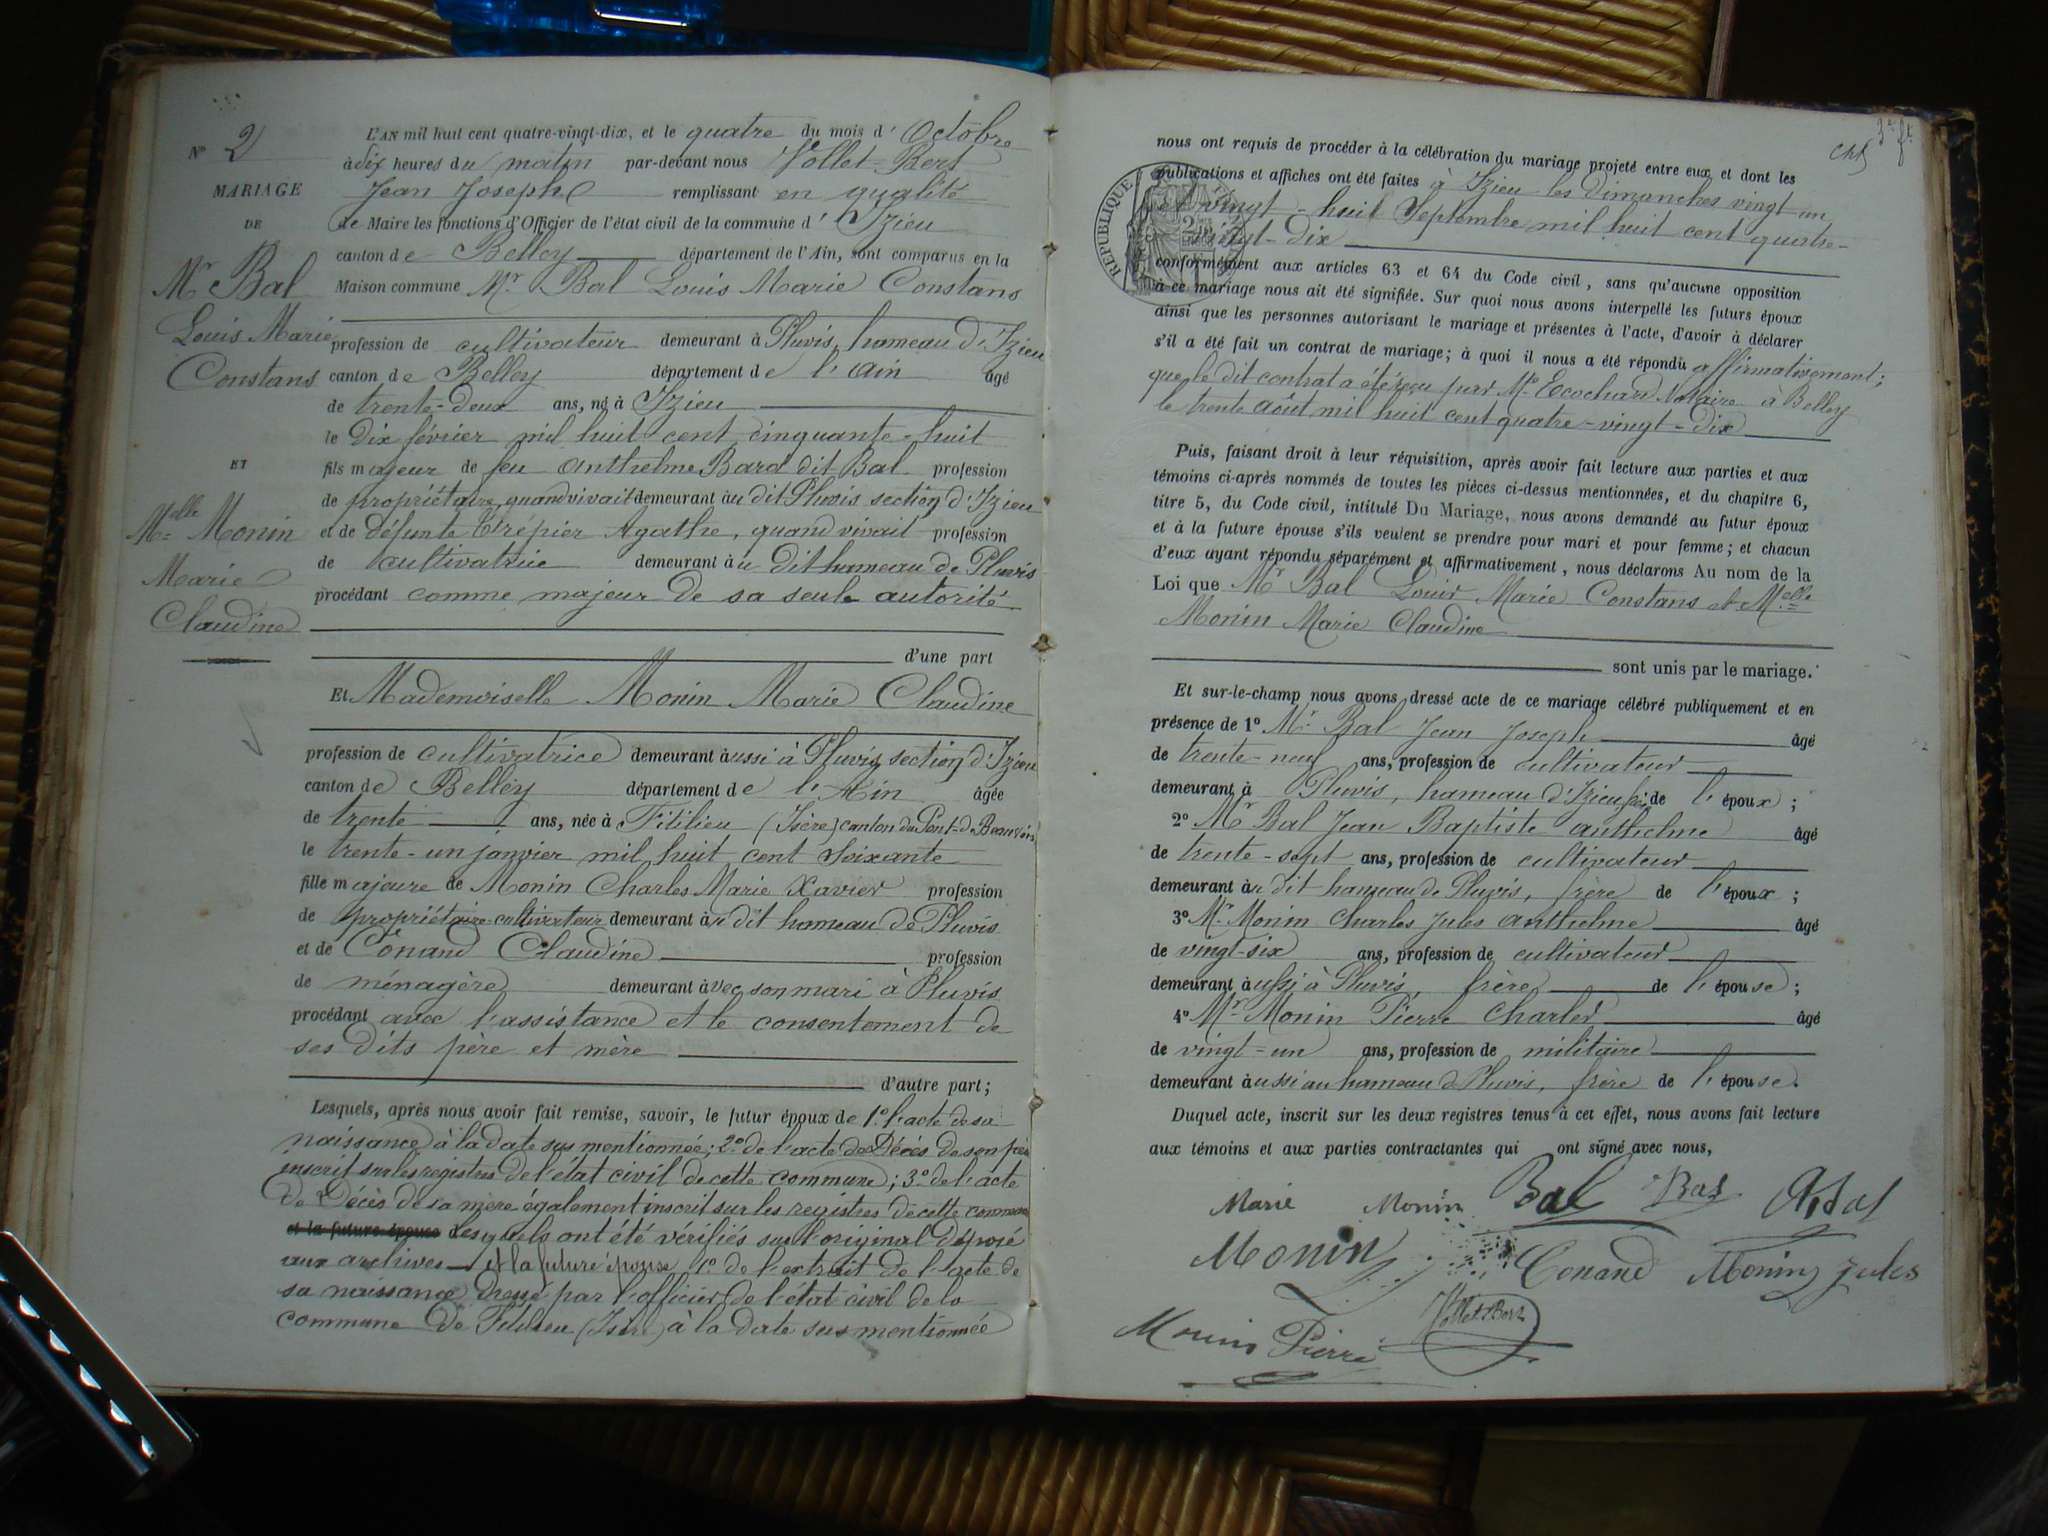 N° 2
MARIAGE
DE
Mr Bal
Louis Marie
Constans
ET
Melle Monin
Marie
Claudine
L'AN mil huit cent quatre-vingt-dix, et le quatre du mois d'Octobre
à dix heures du matin par-devant nous Vollet-Bert
Jean Joseph remplissant en qualité
de Maire les fonctions d'Officier de l'état civil de la commune d'Izieu
canton de Belley département de l'Ain, sont comparus en la
Maison commune Mr Bal Louis Marie Constans
profession de cultivateur demeurant à Pluvis, hameau d'Izieu
canton de Belley département de l'Ain âgé
de trente-deux ans, né à Izieu
le dix février mil huit cent cinquante-huit
fils majeur de feu Anthelme Baral dit Bal profession
de propriétaire, quand vivait demeurant au dit Pluvis section d'Izieu
et de défunte Trepier Agathe, quand vivait profession
de cultivatrice demeurant au dit hameau de Pluvis
procédant comme majeur de sa seule autorité
d'une part
Et Mademoiselle Monin Marie Claudine
profession de cultivatrice demeurant aussi à Pluvis section d'Izieu
canton de Belley département de l'Ain âgée
de trente ans, née à Fitilieu (Isère) canton du Pont-de-Beauvoisin
le trente-un janvier mil huit cent soixante
fille majeure de Monin Charles Marie Xavier profession
de propriétaire-cultivateur demeurant au dit hameau de Pluvis
et de Conand Claudine profession
de ménagère demeurant avec son mari à Pluvis
procédant avec l'assistance et le consentement de
ses dits père et mère
d'autre part;
Lesquels, après nous avoir fait remise, savoir, le futur époux de 1° l'acte de sa
naissance à la date sus mentionnée; 2° de l'acte de Décès de son père
inscrit sur les registres de l'état civil de cette commune; 3° de l'acte
de Décès de sa mère également inscrit sur les registres de cette commune
et la future épouse lesquels ont été vérifiés sur l'original déposé
aux archives et la future épouse 1° de l'extrait de l'acte de
sa naissance dressé par l'officier de l'état civil de la
commune de Fitilieu (Isère) à la date sus mentionnée
nous ont requis de procéder à la célébration du mariage projeté entre eux et dont les
publications et affiches ont été faites à Izieu les dimanches vingt-un
et vingt-huit Septembre mil huit cent quatre-
vingt-dix
RÉPUBLIQUE
conformément aux articles 63 et 64 du Code civil, sans qu'aucune opposition
à ce mariage nous ait été signifiée. Sur quoi nous avons interpellé les futurs époux
ainsi que les personnes autorisant le mariage et présentes à l'acte, d'avoir à déclarer
s'il a été fait un contrat de mariage; à quoi il nous a été répondu affirmativement;
que le dit contrat a été reçu par Me Ecochard Notaire à Belley
le trente Août mil huit cent quatre-vingt-dix
Puis, faisant droit à leur réquisition, après avoir fait lecture aux parties et aux
témoins ci-après nommés de toutes les pièces ci-dessus mentionnées, et du chapitre 6,
titre 5, du Code civil, intitulé Du Mariage, nous avons demandé au futur époux
et à la future épouse s'ils veulent se prendre pour mari et pour femme; et chacun
d'eux ayant répondu séparément et affirmativement, nous déclarons Au nom de la
Loi que Mr Bal Louis Marie Constans et Melle
Monin Marie Claudine
sont unis par le mariage.
Et sur-le-champ nous avons dressé acte de ce mariage célébré publiquement et en
présence de 1° Mr Bal Jean Joseph âgé
de trente-neuf ans, profession de cultivateur
demeurant à Pluvis, hameau d'Izieu de l'époux;
2° Mr Bal Jean Baptiste Anthelme âgé
de trente-sept ans, profession de cultivateur
demeurant au dit hameau de Pluvis, frère de l'époux;
3° Mr Monin Charles Jules Anthelme âgé
de vingt-six ans, profession de cultivateur
demeurant aussi à Pluvis, frère de l'épouse;
4° Mr Monin Pierre Charles âgé
de vingt-un ans, profession de militaire
demeurant aussi au hameau de Pluvis, frère de l'épouse.
Duquel acte, inscrit sur les deux registres tenus à cet effet, nous avons fait lecture
aux témoins et aux parties contractantes qui ont signé avec nous,
Marie Monin Bal Bal
Monin Conand Monin Jules
Monin Pierre Vollet-Bert